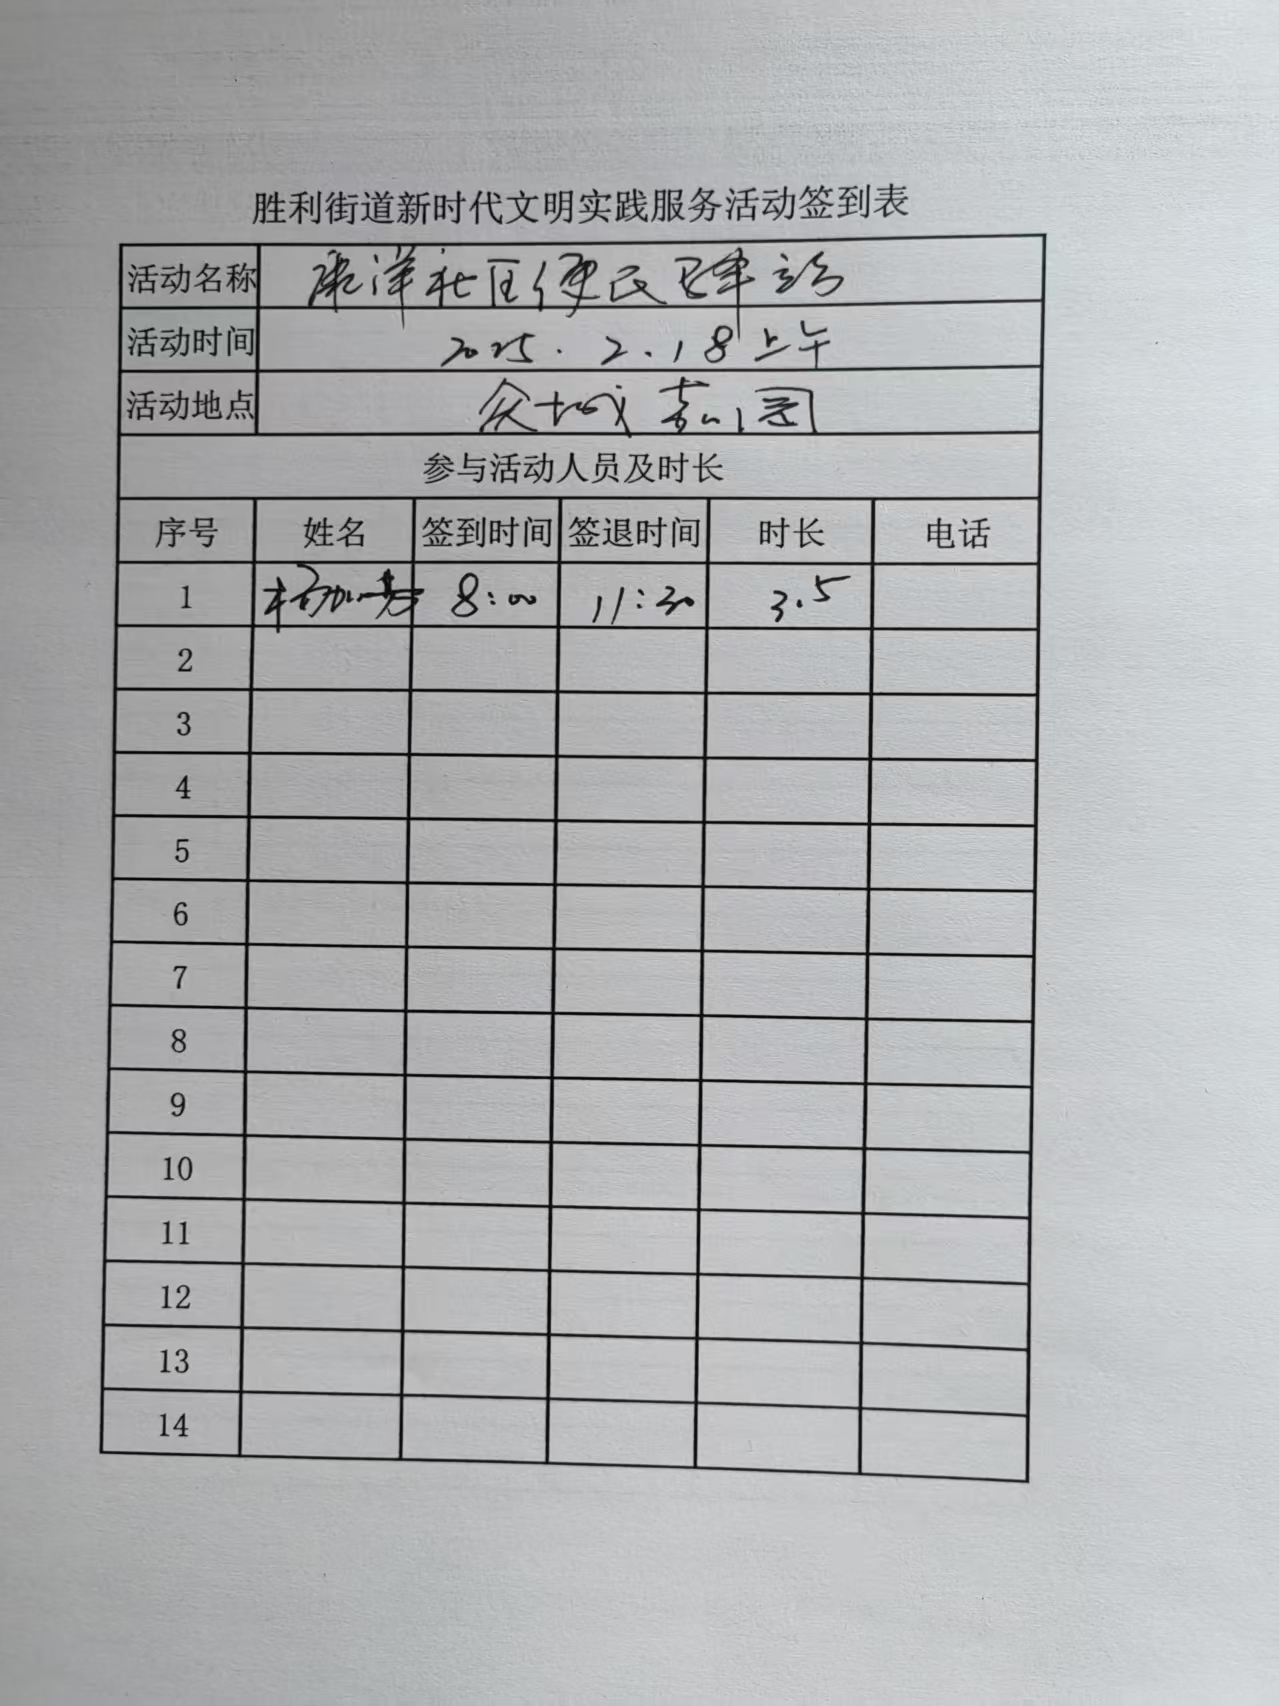 胜利街道新时代文明实践服务活动签到表
活动名称 康洋社区便民理发站
活动时间 2025.2.18上午
活动地点 众城嘉园
参与活动人员及时长
序号 姓名 签到时间 签退时间 时长 电话
1 8:00 11:30 3.5
2
3
4
5
6
7
8
9
10
11
12
13
14